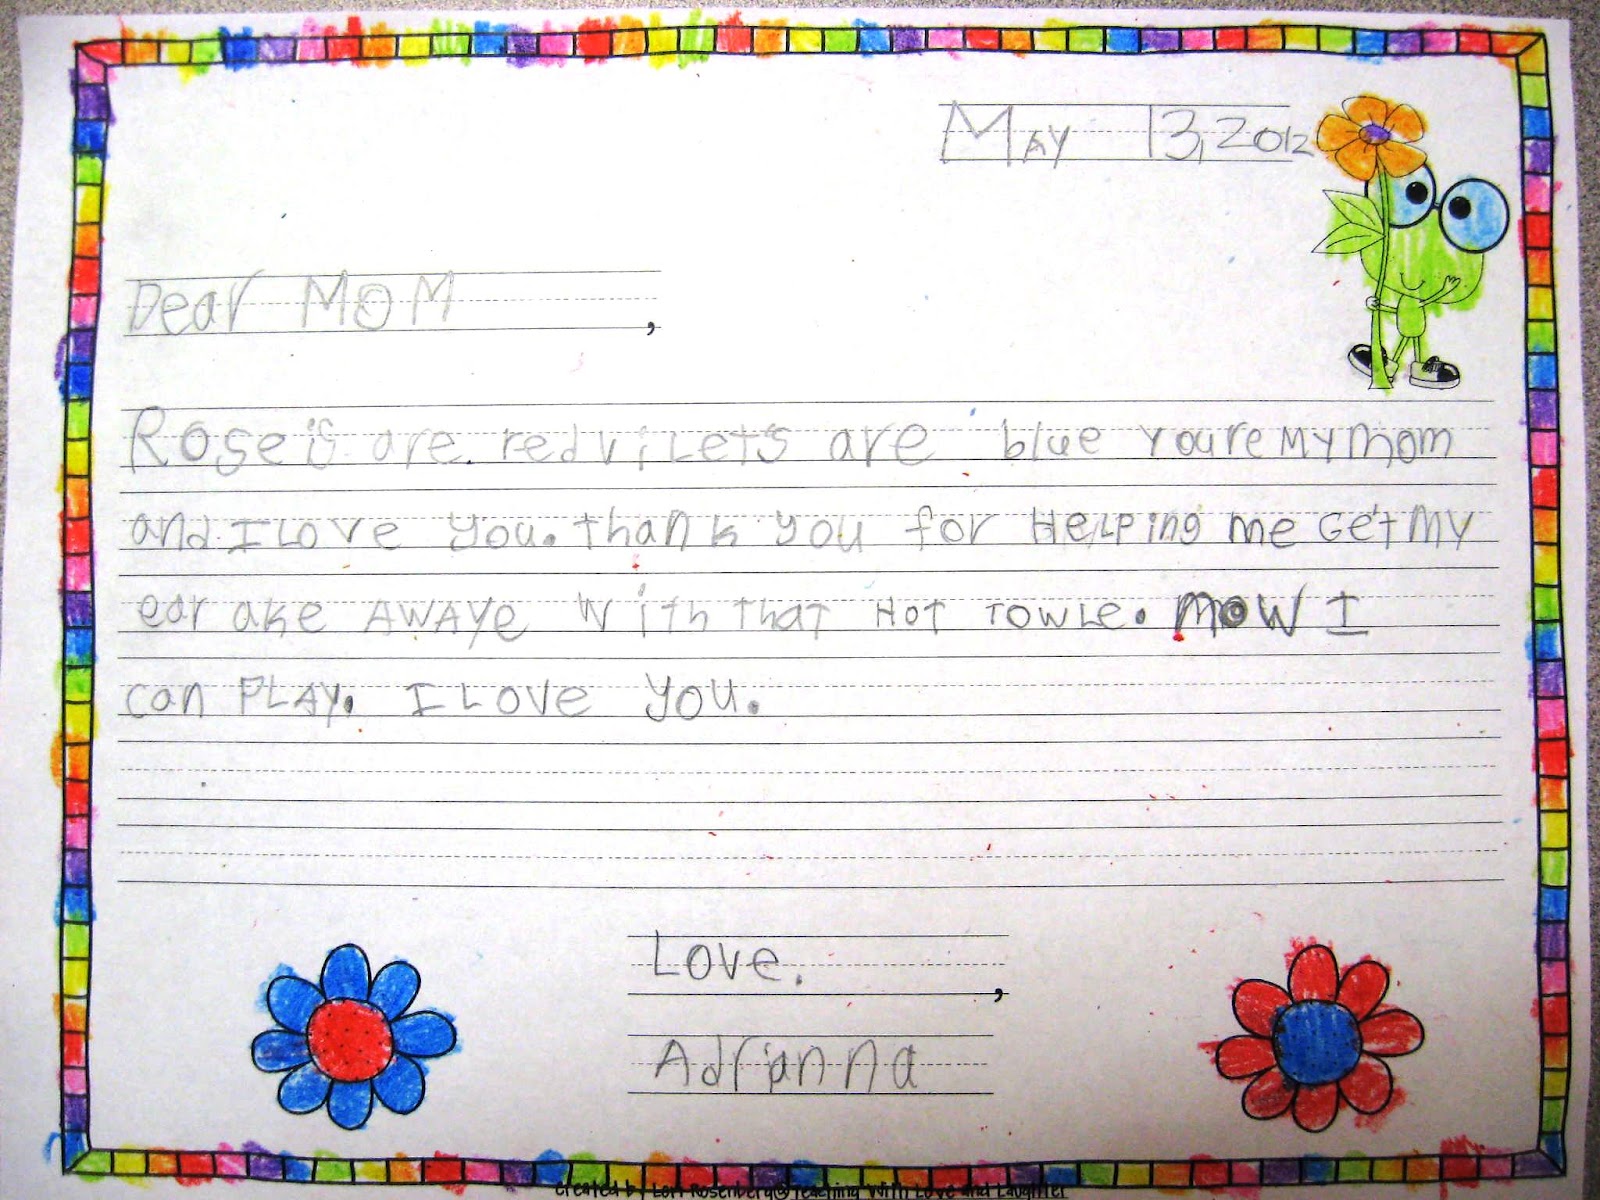 May 13, 2012
Dear MOM,
Roseis are. red vilets are blue youre My mom
and I Love you. thank you for HeLping me Get My
ear ake AWAYe With that Hot TOWLe. MOW I
can PLAY. I Love you.
Love.,
Adrianna
created by Lori Rosenberg@Teaching With Love and Laughter